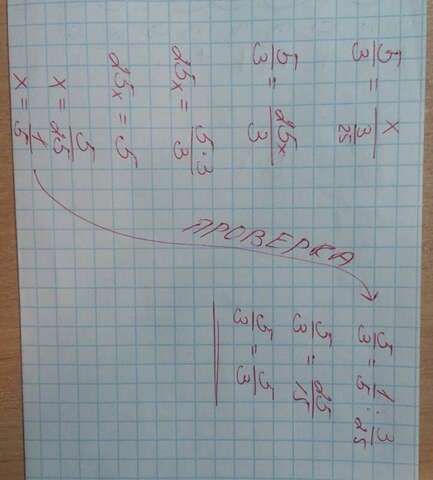 5/3 = x / 3/25
5/3 = 25x/3
25x = 5·3/3
25x = 5
x = 5/25
x = 1/5
ПРОВЕРКА
5/3 = 1/5 : 3/25
5/3 = 25/15
5/3 = 5/3